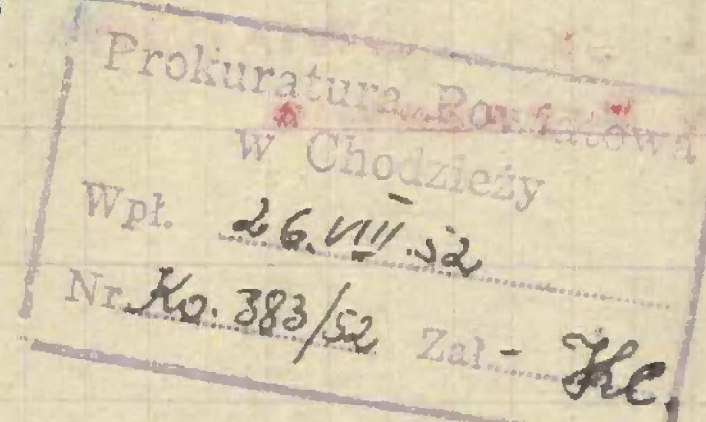 Prokuratura Powiatowa
w Chodzieży
Wpł. 26.VIII.52
Nr Ko. 383/52 Zał -